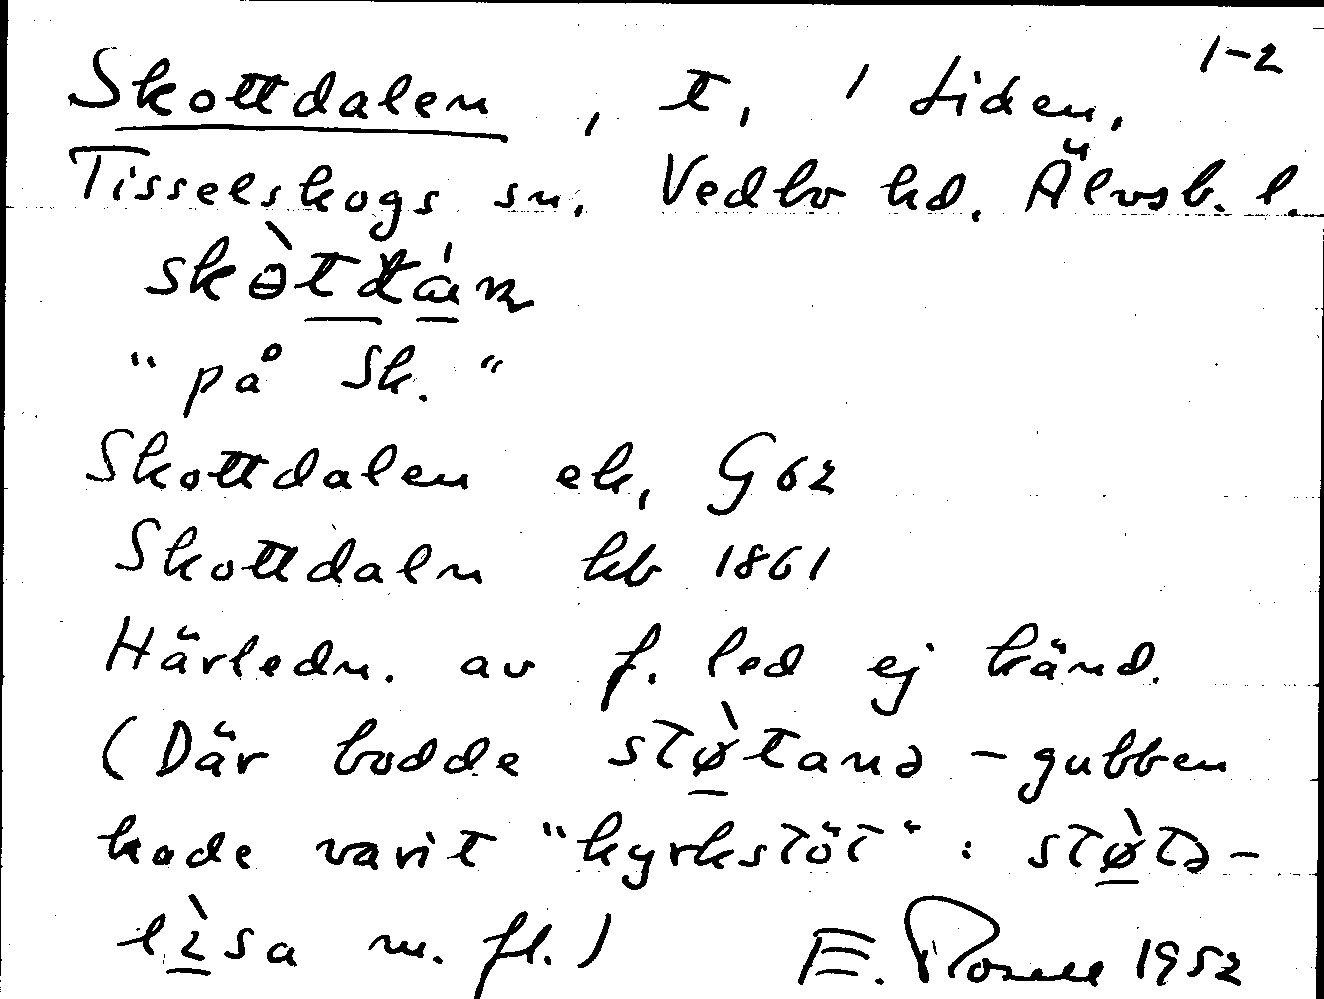 1-2
Skottdalen, t, 1 Liden,
Tisselskogs sn. Vedbo hd. Älvsb. l.
"på Sk."
Skottdalen ek, G62
Skottdaln kb 1861
Härledn. av f. led ej känd.
(Där bodde støtanə-gubben
hade varit "kyrkstöt": støtə-
lisa m. fl.) E. 1952